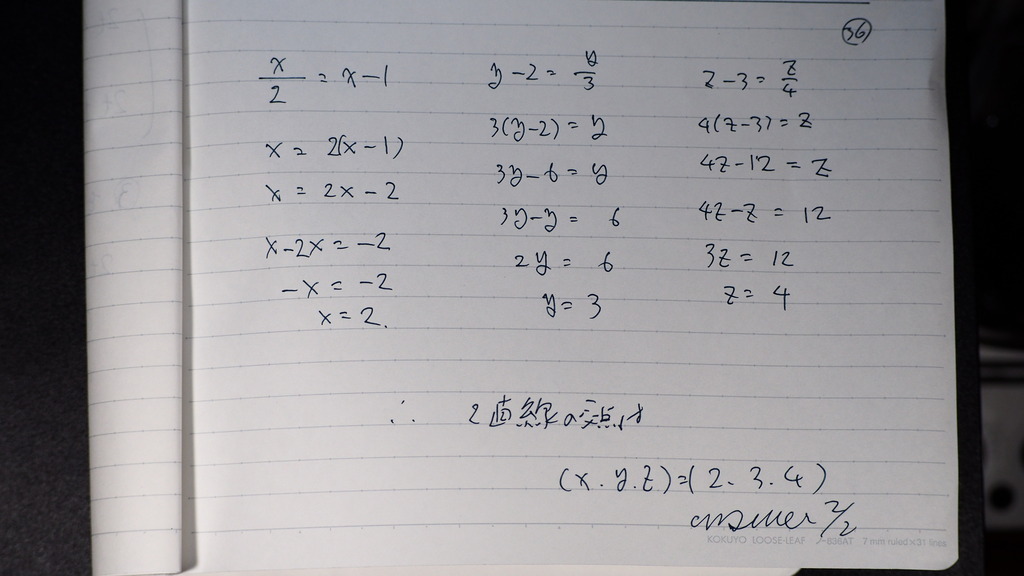 36
x/2 = x-1
x = 2(x-1)
x = 2x-2
x-2x = -2
-x = -2
x = 2.
y-2 = y/3
3(y-2) = y
3y-6 = y
3y-y = 6
2y = 6
y = 3
z-3 = z/4
4(z-3) = z
4z-12 = z
4z-z = 12
3z = 12
z = 4
∴ 2直線の交点は
(x.y.z)=(2.3.4)
answer 2/2
KOKUYO LOOSE-LEAF ノ-836AT 7 mm ruled×31 lines